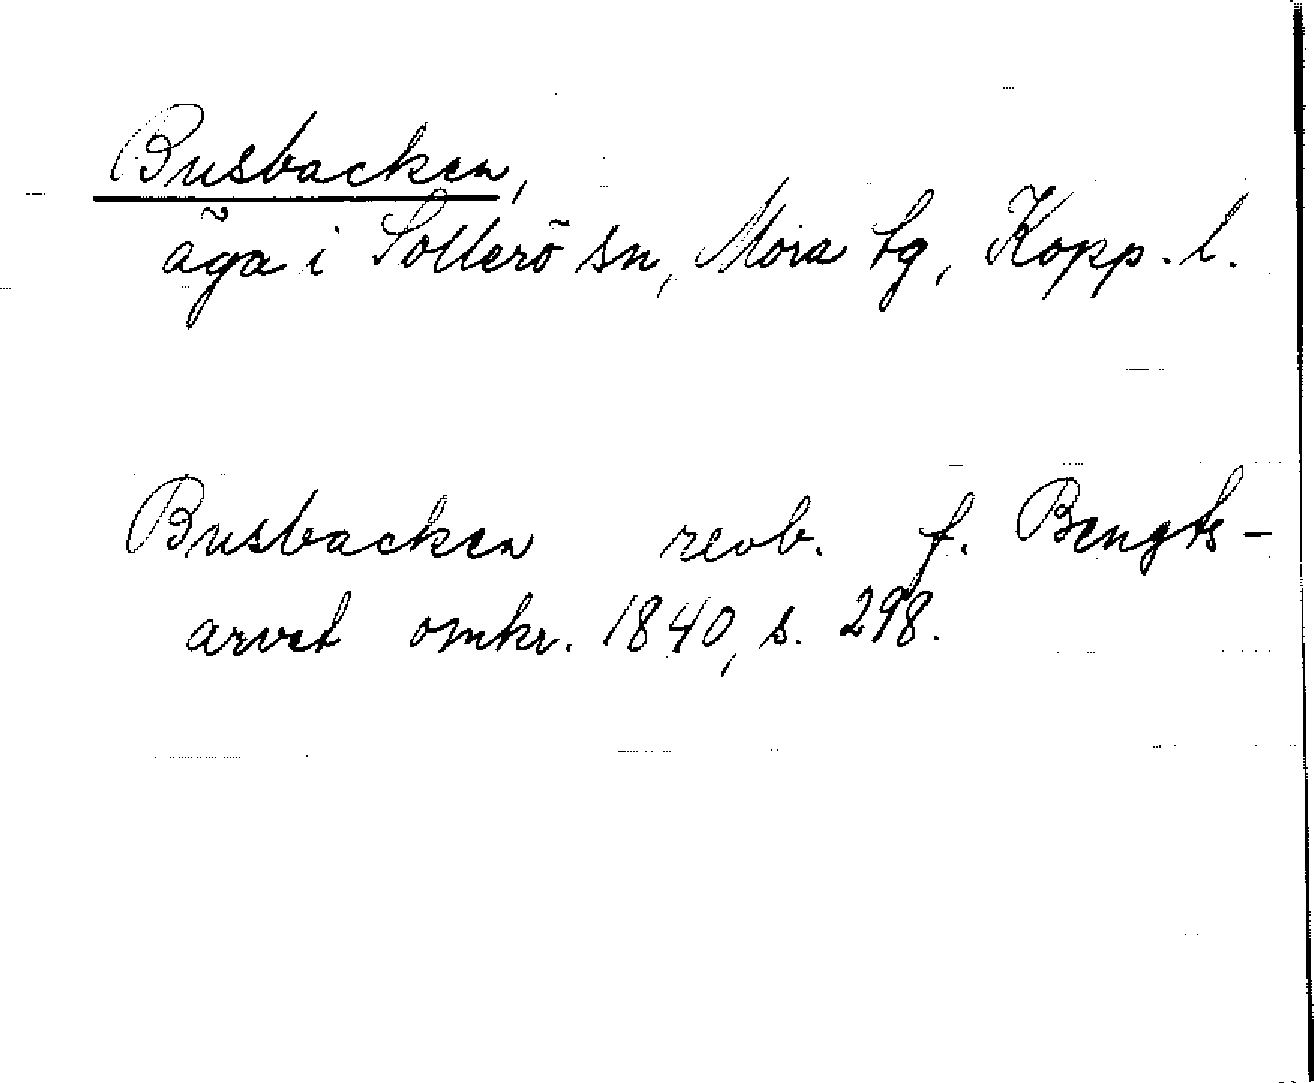 Busbacken,
äga i Sollerö sn, Mora tg, Kopp. l.
Busbacken revb. f. Bengts-
arvet omkr. 1840, s. 298.